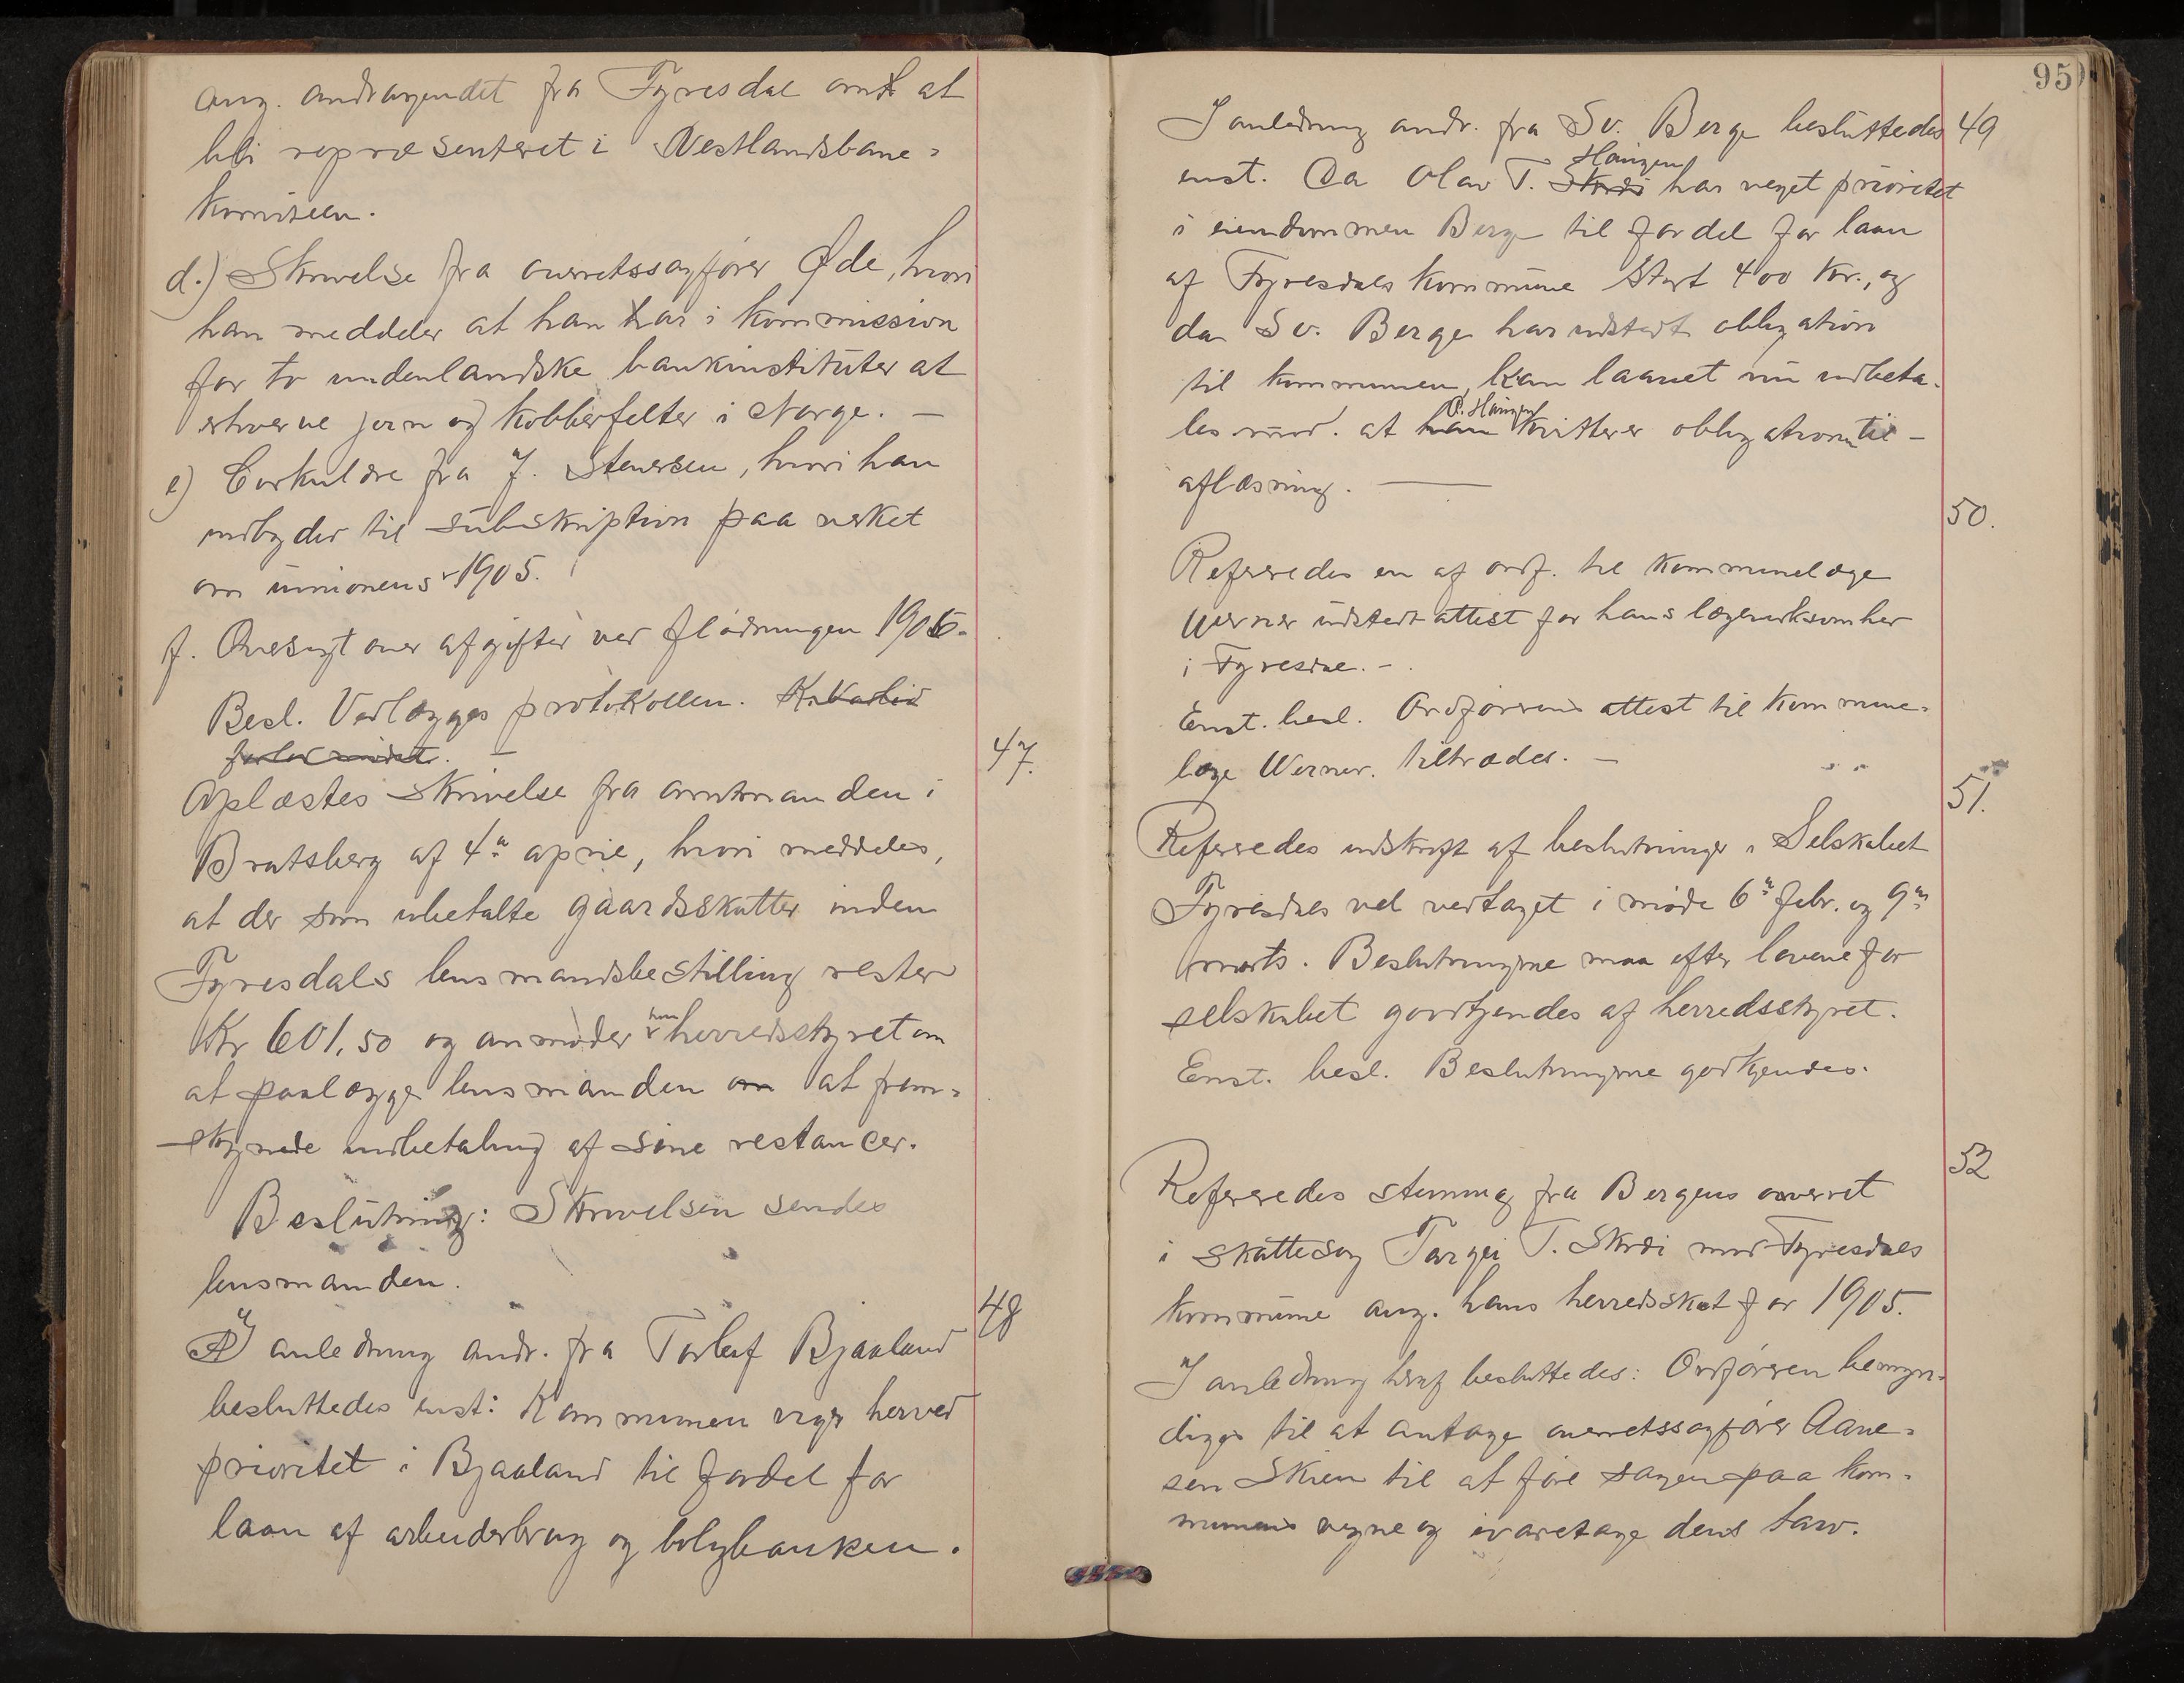 ang. andragendet fra Fyresdal om at
bli repræsenteret i Vestlandsbane-
komiteen.
d.) Skrivelse fra overretssagfører Øde, hvori
han meddeler at han har i kommission
for to udenlandske bankinstituter at
erhverve jern og kobberfelter i Norge. —
e) Cirkulære fra J. Stenersen, hvori han
indbyder til subskription paa verket
om unionens 1905.
f. Oversigt over afgifter ved flødningen 1906.
Besl. Vedlægges protokollen.
47.
Oplæstes skrivelse fra amtmanden i
Bratsberg af 4de april, hvori meddeles,
at der som ubetalte gaardsskatter inden
Fyresdals lensmandsbestilling rester
Kr 601,50 og anmoder han herredsstyret om
at paalægge lensmanden om at frem-
skynde indbetaling af sine restancer.
Beslutning: Skrivelsen sendes
lensmanden.
48
I anledning andr. fra Torleif Bjaaland
besluttedes enst: Kommunen viger herved
prioritet i Bjaaland til fordel for
laan af arbeiderbrug og boligbanken.
95
I anledning andr. fra Sv. Berge besluttedes 49
Haugen
enst. Da Olav T. Skræi har veget prioritet
i eiendommen Berge til fordel for laan
af Fyresdals kommune stort 400 kr., og
da Sv. Berge har udstedt obligation
til kommunen, kan laanet nu udbeta-
O. Haugen
les mod. at han kvitterer obligationen til
aflæsning. —
50.
Refereredes en af ordf. til kommunelæge
Werner udstedt attest for hans lægevirksomhed
i Fyresdal. -
Enst. besl. Ordførerens attest til kommune-
læge Werner. tiltrædes. —
51.
Refereredes udskrift af beslutninger i Selskabet
Fyresdals vel vedtaget i møde 6te febr. og 9de
marts. Beslutningerne maa efter lovene for
selskabet godkjendes af herredsstyret.
Enst. besl. Beslutningerne godkjendes.
52
Refereredes stevning fra Bergens overret
i skattesag Targei T. Skræi mod Fyresdals
kommune ang. hans herredsskat for 1905.
I anledning heraf besluttedes: Ordføreren bemyn-
diges til at antage overretssagfører Aane-
sen Skien til at føre sagen paa kom-
munens vegne og ivaretage dens tarv.